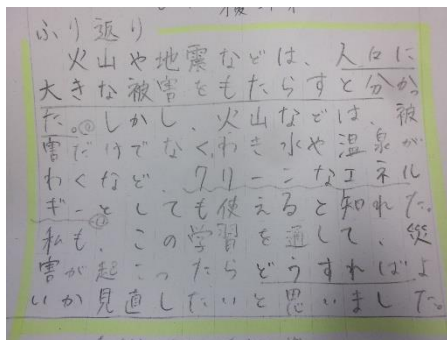 ふり返り
火山や地震などは、人々に
大きな被害をもたらすと分かっ
た。しかし、火山などは、被
害だけでなく、わき水や温泉が
わくなど、クリーンなエネル
ギーとしても使えると知れた。
私も、この学習を通して、災
害が起こったらどうすればよ
いか見直したいと思いました。